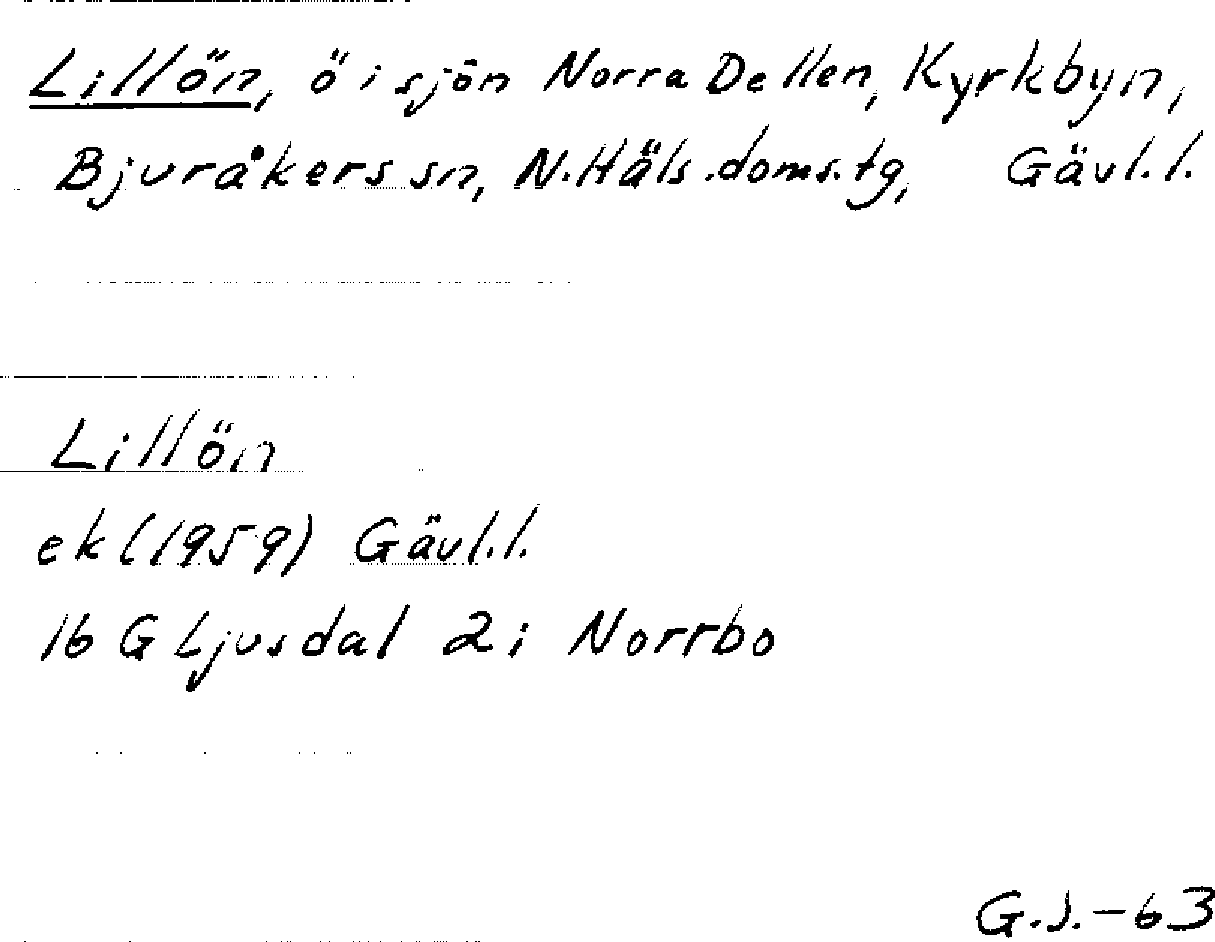 Lillön, ö i sjön Norra Dellen, Kyrkbyn,
Bjuråkers sn, N. Häls. doms. tg, Gävl. l.
Lillön
ek (1959) Gävl. l.
16 G Ljusdal 2 i Norrbo
G.J.-63